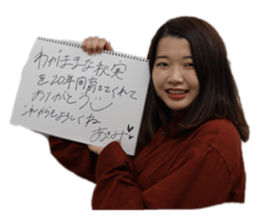 わがままな秋実
を20年間育ててくれて
ありがとう
これからもよろしくね
あきみ